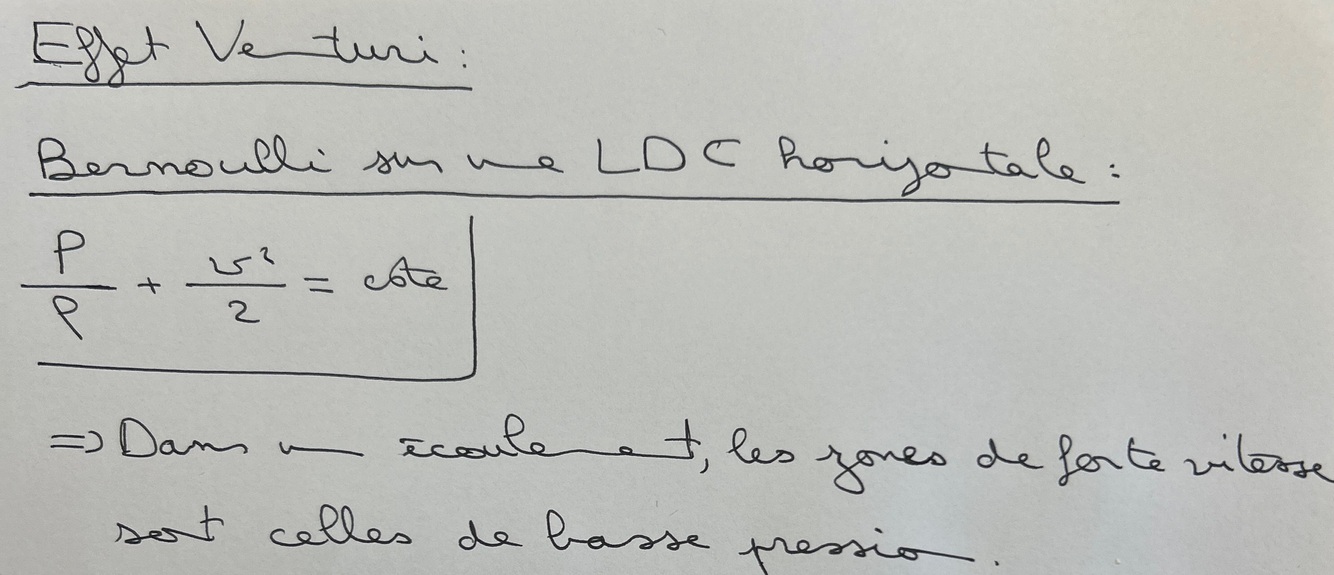 Effet Venturi :
Bernoulli sur une LDC horizontale :
P/ρ + v²/2 = côte
=> Dans un écoulement, les zones de forte vitesse
sont celles de basse pression.